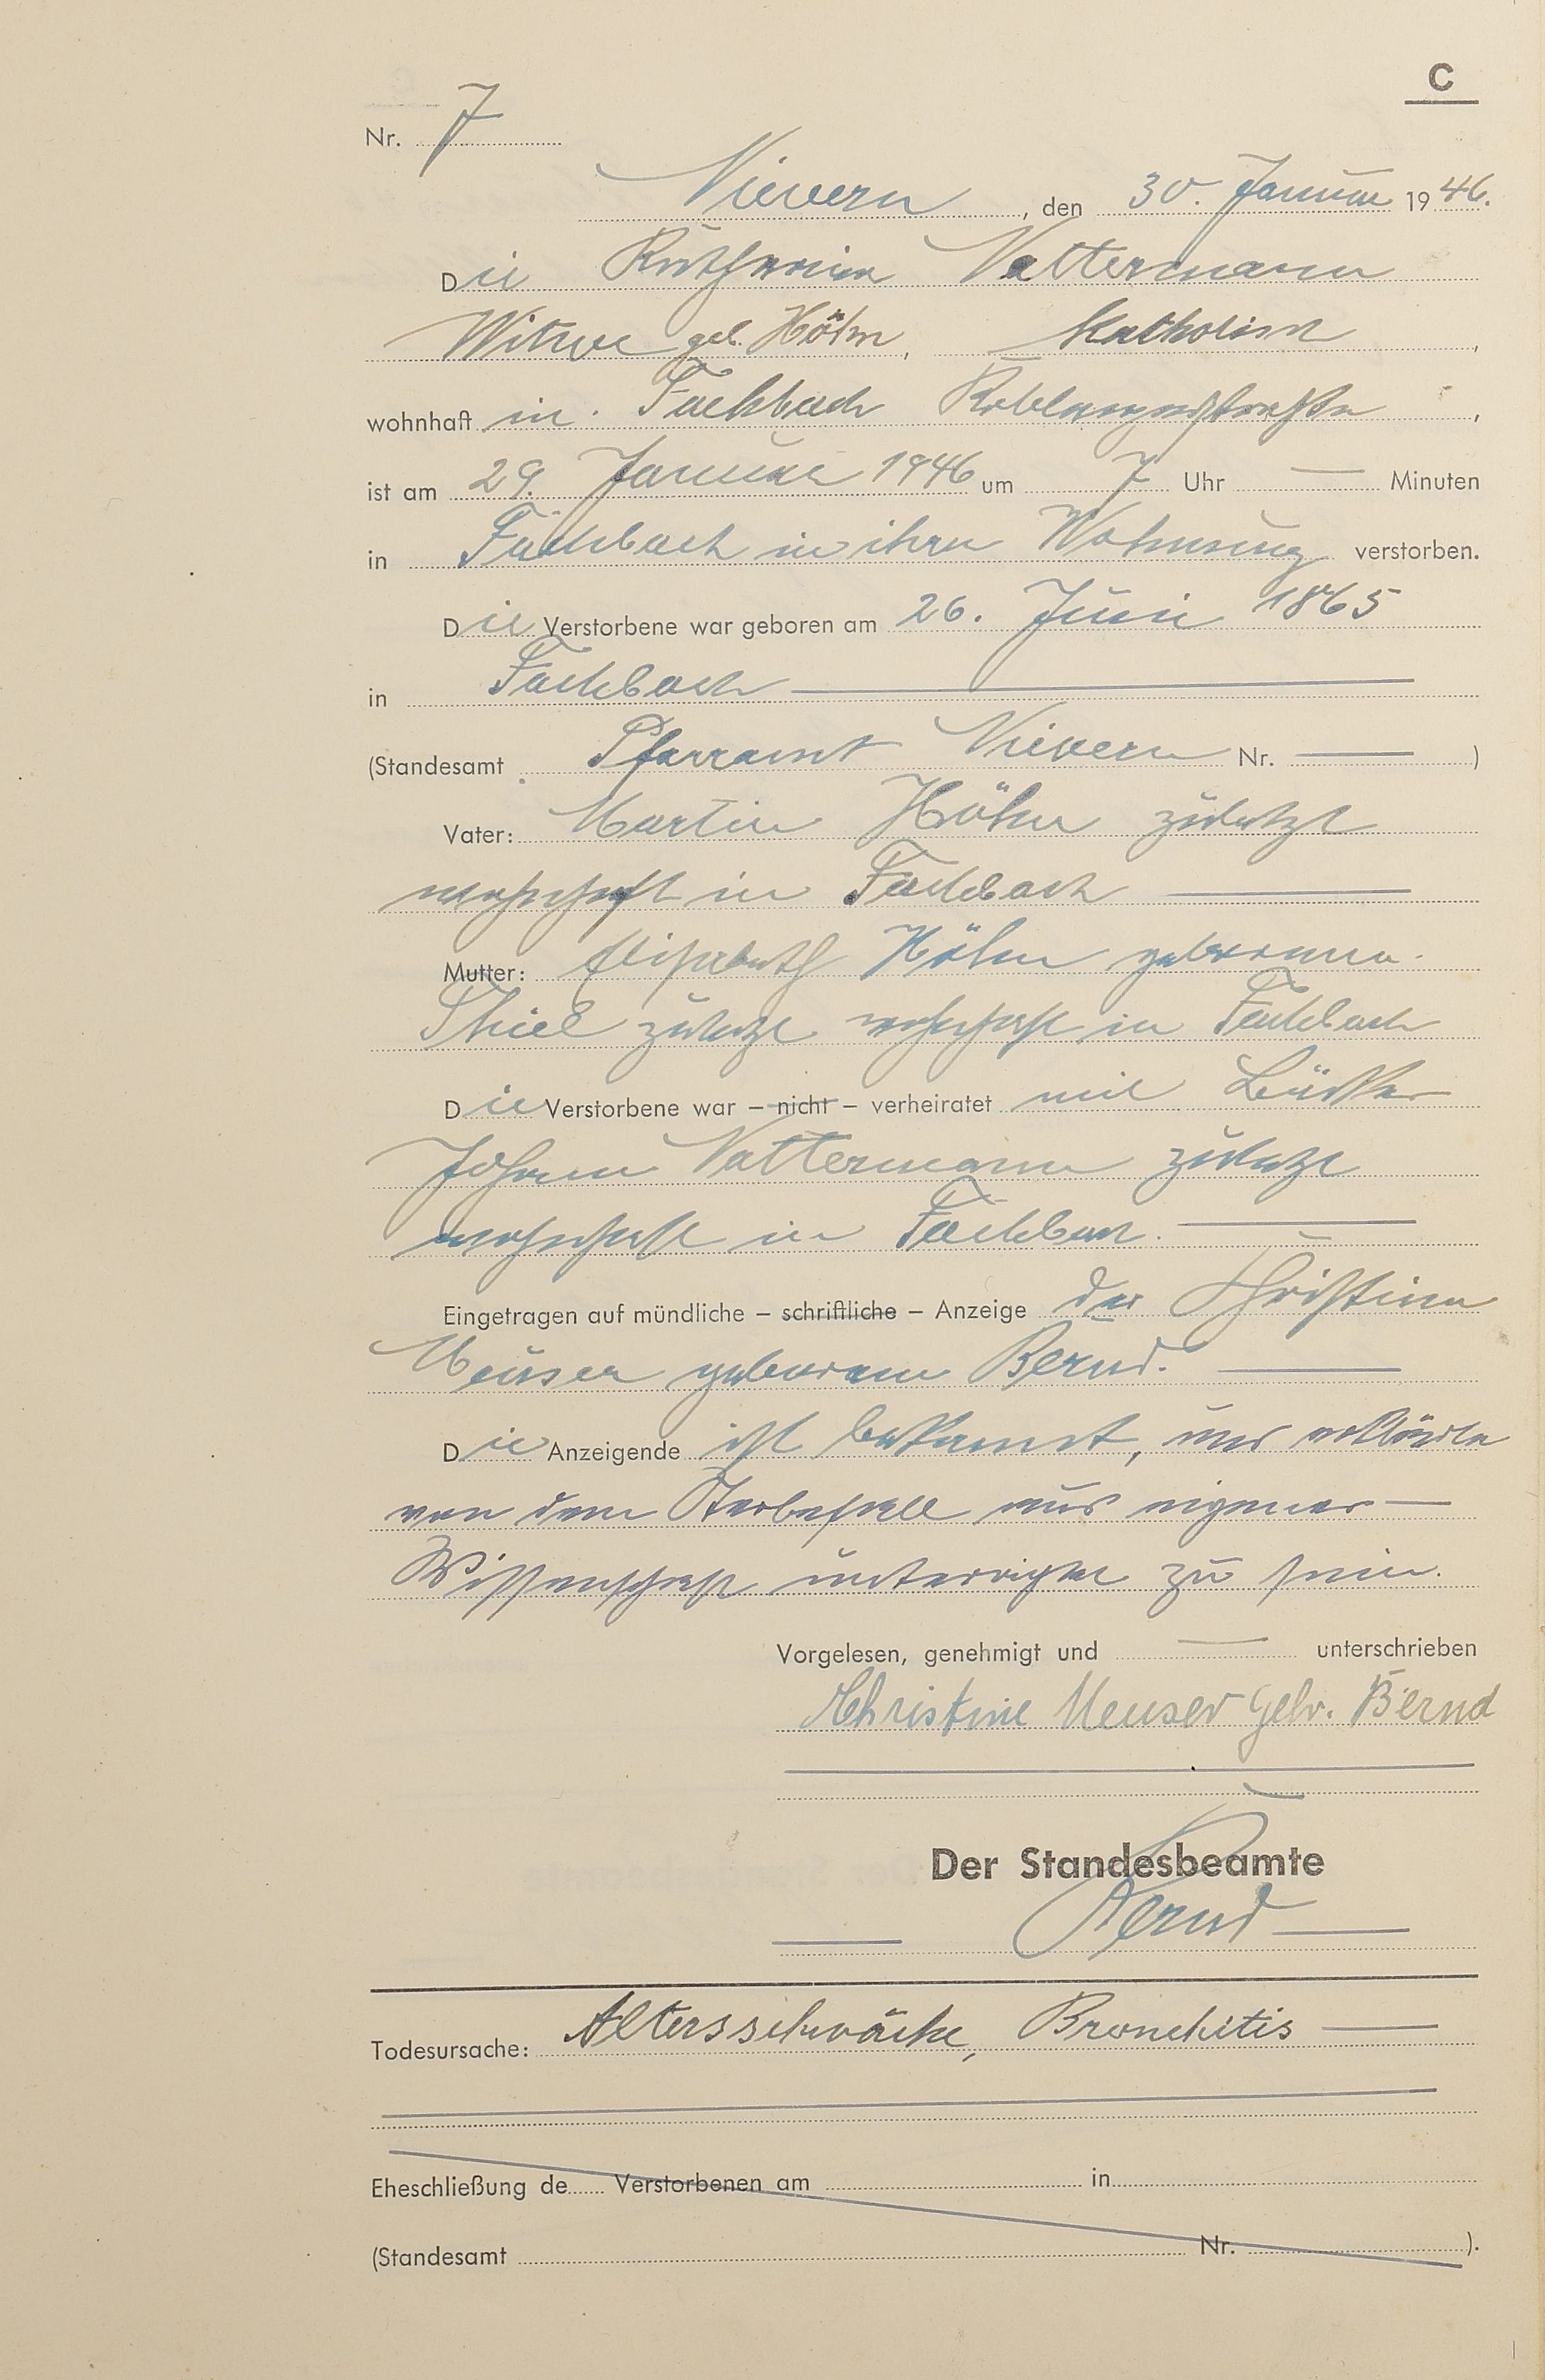 C
Nr. 7
Nievern, den 30. Januar 1946.
Die Katharina Vattermann
Witwe geb. Höhn, katholisch,
wohnhaft in Fachbach Koblenzerstraße,
ist am 29. Januar 1946 um 7 Uhr — Minuten
in Fachbach in ihrer Wohnung verstorben.
Die Verstorbene war geboren am 26. Juni 1865
in Fachbach —
(Standesamt Pfarramt Nievern Nr. — )
Vater: Martin Höhn zuletzt
wohnhaft in Fachbach —
Mutter: Elisabeth Höhn geborene
Thiel zuletzt wohnhaft in Fachbach
Die Verstorbene war – nicht – verheiratet mit
Johann Vattermann zuletzt
wohnhaft in Fachbach. —
Eingetragen auf mündliche – schriftliche – Anzeige der Christina
Meuser geborene Bernd. —
Die Anzeigende ist bekannt, und erklärte
von dem Sterbefall aus eigener —
Wissenschaft unterrichtet zu sein.
Vorgelesen, genehmigt und — unterschrieben
Christine Meuser Geb. Bernd
Der Standesbeamte
Bernd —
Todesursache: Altersschwäche, Bronchitis —
Eheschließung de Verstorbenen am in
(Standesamt Nr. ).